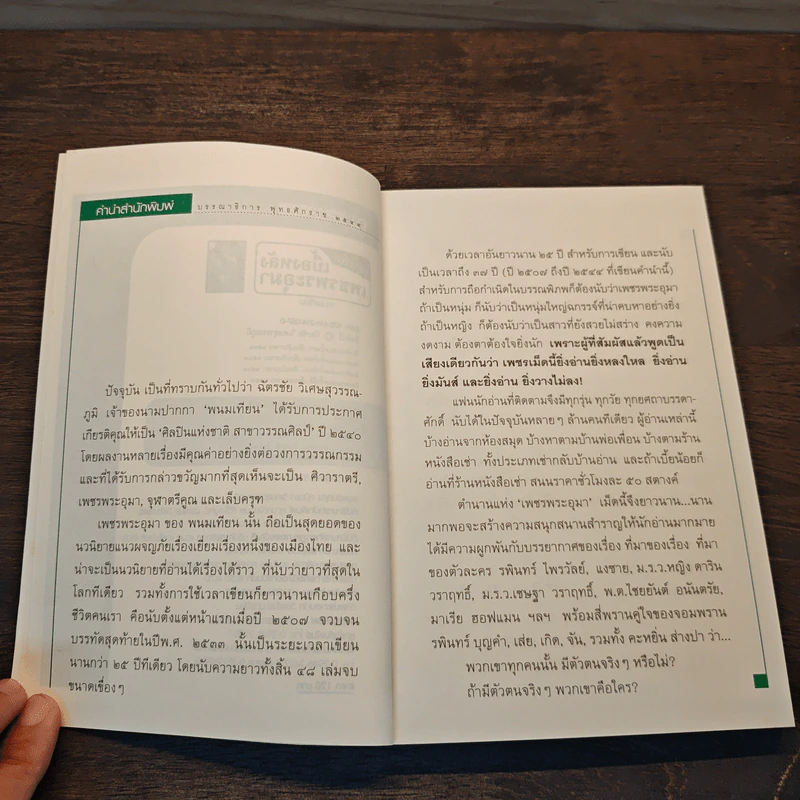 คำนำสำนักพิมพ์
บรรณาธิการ พุทธศักราช ๒๕๔๔
ปัจจุบัน เป็นที่ทราบกันทั่วไปว่า ฉัตรชัย วิเศษสุวรรณ-
ภูมิ เจ้าของนามปากกา ‘พนมเทียน’ ได้รับการประกาศ
เกียรติคุณให้เป็น ‘ศิลปินแห่งชาติ สาขาวรรณศิลป์’ ปี ๒๕๔๐
โดยผลงานหลายเรื่องมีคุณค่าอย่างยิ่งต่อวงการวรรณกรรม
และที่ได้รับการกล่าวขวัญมากที่สุดเห็นจะเป็น ศิวาราตรี,
เพชรพระอุมา, จุฬาตรีคูณ และเล็บครุฑ
เพชรพระอุมา ของ พนมเทียน นั้น ถือเป็นสุดยอดของ
นวนิยายแนวผจญภัยเรื่องเยี่ยมเรื่องหนึ่งของเมืองไทย และ
น่าจะเป็นนวนิยายที่อ่านได้เรื่องได้ราว ที่นับว่ายาวที่สุดใน
โลกทีเดียว รวมทั้งการใช้เวลาเขียนก็ยาวนานเกือบครึ่ง
ชีวิตคนเรา คือนับตั้งแต่หน้าแรกเมื่อปี ๒๕๐๗ จวบจน
บรรทัดสุดท้ายในปีพ.ศ. ๒๕๓๓ นั้นเป็นระยะเวลาเขียน
นานกว่า ๒๕ ปีทีเดียว โดยนับความยาวทั้งสิ้น ๔๘ เล่มจบ
ขนาดเขื่อง ๆ
ด้วยเวลาอันยาวนาน ๒๕ ปี สำหรับการเขียน และนับ
เป็นเวลาถึง ๓๗ ปี (ปี ๒๕๐๗ ถึงปี ๒๕๔๔ ที่เขียนคำนำนี้)
สำหรับการถือกำเนิดในบรรณพิภพก็ต้องนับว่าเพชรพระอุมา
ถ้าเป็นหนุ่ม ก็นับว่าเป็นหนุ่มใหญ่ฉกรรจ์ที่น่าคบหาอย่างยิ่ง
ถ้าเป็นหญิง ก็ต้องนับว่าเป็นสาวที่ยังสวยไม่สร่าง คงความ
งดงาม ต้องตาต้องใจยิ่งนัก เพราะผู้ที่สัมผัสแล้วพูดเป็น
เสียงเดียวกันว่า เพชรเม็ดนี้ยิ่งอ่านยิ่งหลงใหล ยิ่งอ่าน
ยิ่งมันส์ และยิ่งอ่าน ยิ่งวางไม่ลง!
แฟนนักอ่านที่ติดตามจึงมีทุกรุ่น ทุกวัย ทุกยศถาบรรดา-
ศักดิ์ นับได้ในปัจจุบันหลาย ๆ ล้านคนทีเดียว ผู้อ่านเหล่านี้
บ้างอ่านจากห้องสมุด บ้างหาตามบ้านพ่อเพื่อน บ้างตามร้าน
หนังสือเช่า ทั้งประเภทเช่ากลับบ้านอ่าน และถ้าเบี้ยน้อยก็
อ่านที่ร้านหนังสือเช่า สนนราคาชั่วโมงละ ๕๐ สตางค์
ตำนานแห่ง ‘เพชรพระอุมา’ เม็ดนี้จึงยาวนาน...นาน
มากพอจะสร้างความสนุกสนานสำราญให้นักอ่านมากมาย
ได้มีความผูกพันกับบรรยากาศของเรื่อง ที่มาของเรื่อง ที่มา
ของตัวละคร รพินทร์ ไพรวัลย์, แงซาย, ม.ร.ว.หญิง ดาริน
วราฤทธิ์, ม.ร.ว.เชษฐา วราฤทธิ์, พ.ต.ไชยยันต์ อนันตรัย,
มาเรีย ฮอฟแมน ฯลฯ พร้อมสี่พรานคู่ใจของจอมพราน
รพินทร์ บุญคำ, เส่ย, เกิด, จัน, รวมทั้ง คะหยิ่น ส่างปา ว่า...
พวกเขาทุกคนนั้น มีตัวตนจริง ๆ หรือไม่?
ถ้ามีตัวตนจริง ๆ พวกเขาคือใคร?